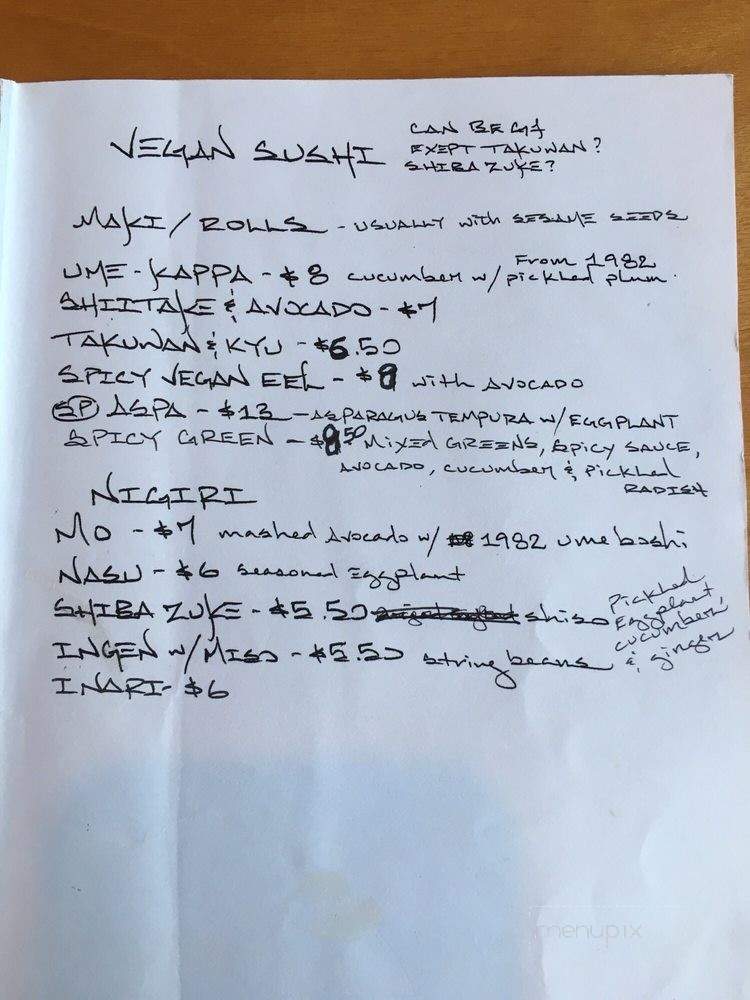 VEGAN SUSHI
CAN BE GF
EXEPT TAKUWAN?
SHIBA ZUKE?
MAKI / ROLLS - USUALLY with SESAME SEEDS
From 1982
UME-KAPPA - $8 cucumber w/ pickled plum.
SHIITAKE & AVOCADO - $7
TAKUWAN & KYU - $6.50
SPICY VEGAN EEL - $9 with AVOCADO
SP ASPA - $13 - ASPARAGUS TEMPURA W/ EGGPLANT
SPICY GREEN - $8.50 MIXED GREENS, SPICY SAUCE,
AVOCADO, CUCUMBER & PICKLED
RADISH
NIGIRI
MO - $7 mashed Avocado w/ 1982 umeboshi
NASU - $6 seasoned Eggplant
SHIBA ZUKE - $5.50 shiso
Pickled
Eggplant,
cucumber
& ginger
INGEN W/ MISO - $5.50 string beans
INARI - $6
menupix